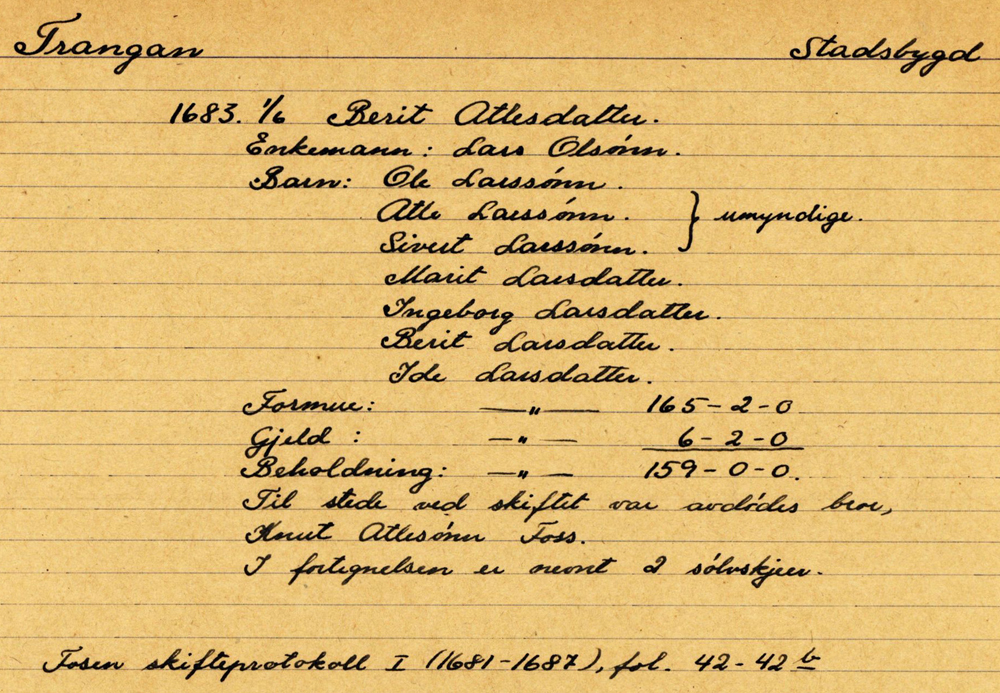 Trangan Stadsbygd
1683. 1/6 Berit Atlesdatter.
Enkemann: Lars Olsönn.
Barn: Ole Larssönn.
Atle Larssönn. } umyndige.
Sivert Larssönn.
Marit Larsdatter.
Ingeborg Larsdatter.
Berit Larsdatter.
Ide Larsdatter.
Formue: —"— 165-2-0
Gjeld : —"— 6-2-0
Beholdning: —"— 159-0-0.
Til stede ved skiftet var avdödes bror,
Knut Atlesönn Foss.
I fortegnelsen er nevnt 2 sölvskjeer.
Fosen skifteprotokoll I (1681-1687), fol. 42-42 b